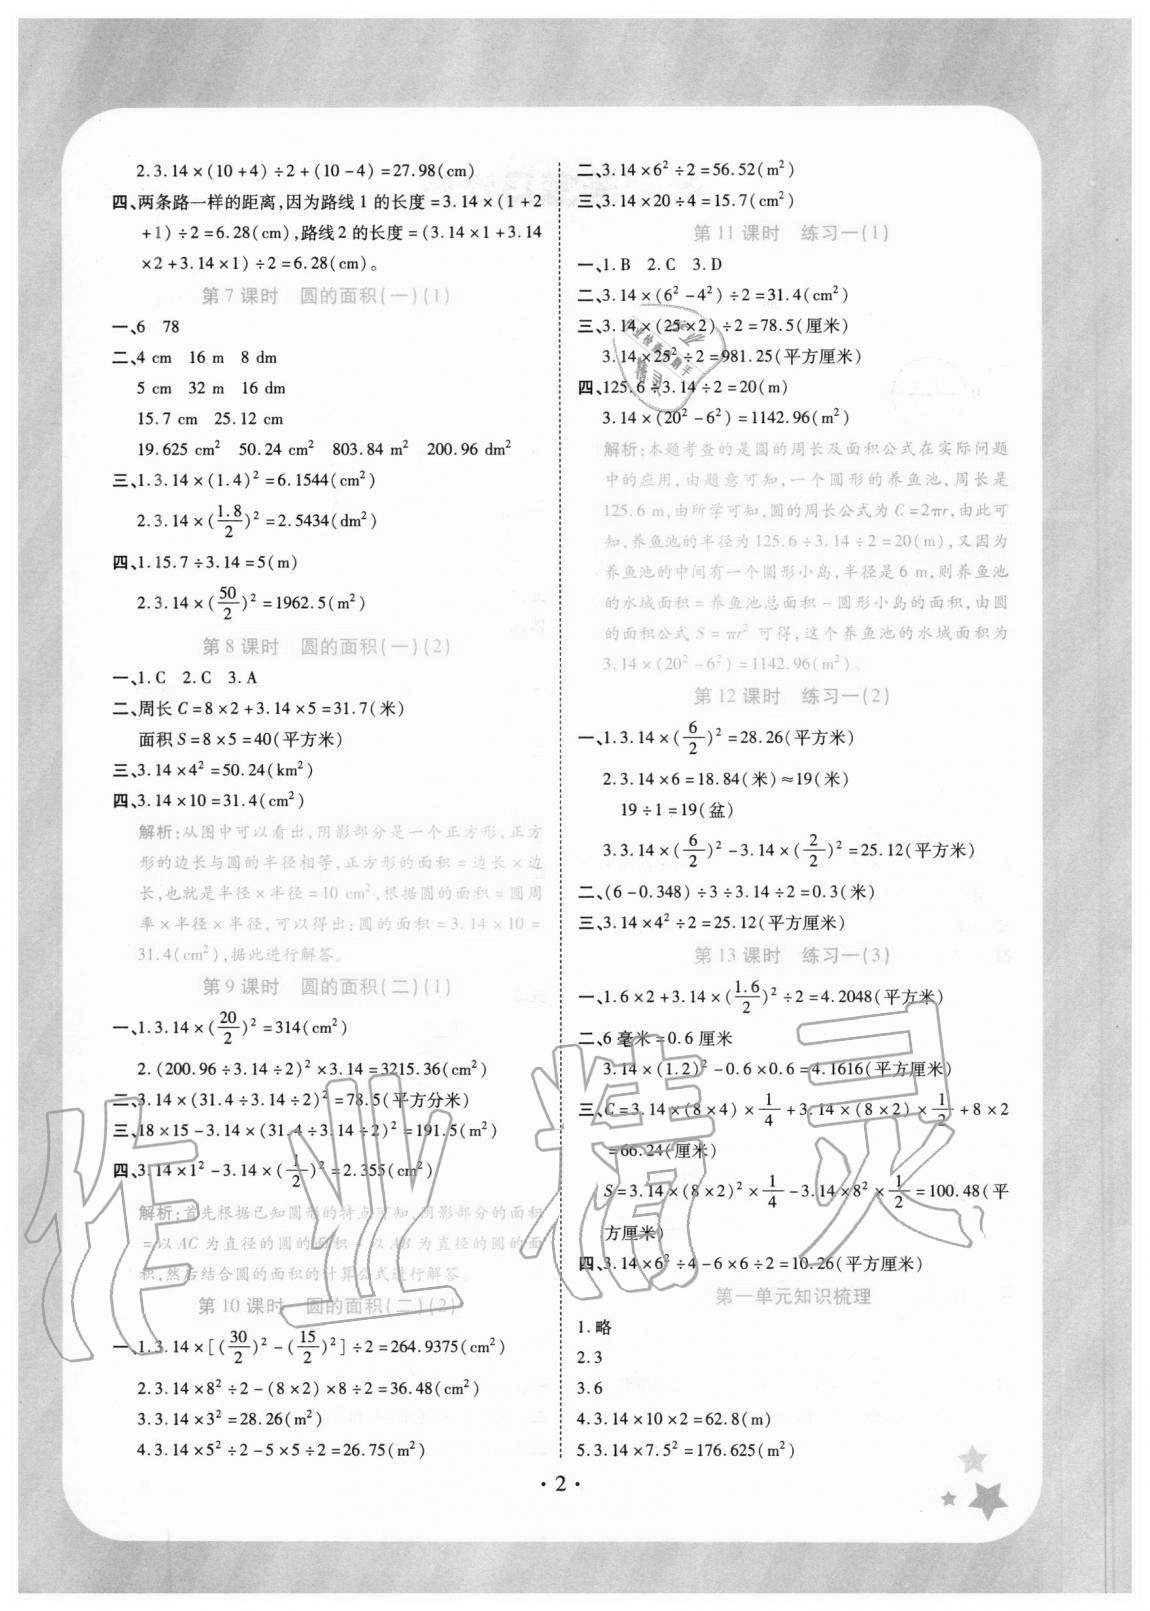 2.3.14×(10+4)÷2+(10-4)=27.98(cm)
四、两条路一样的距离,因为路线1的长度=3.14×(1+2
+1)÷2=6.28(cm),路线2的长度=(3.14×1+3.14
×2+3.14×1)÷2=6.28(cm)。
第7课时 圆的面积(一)(1)
一、6 78
二、4 cm 16 m 8 dm
5 cm 32 m 16 dm
15.7 cm 25.12 cm
19.625 cm² 50.24 cm² 803.84 m² 200.96 dm²
三、1.3.14×(1.4)²=6.1544(cm²)
2.3.14×(1.8/2)²=2.5434(dm²)
四、1.15.7÷3.14=5(m)
2.3.14×(50/2)²=1962.5(m²)
第8课时 圆的面积(一)(2)
一、1.C 2.C 3.A
二、周长C=8×2+3.14×5=31.7(米)
面积S=8×5=40(平方米)
三、3.14×4²=50.24(km²)
四、3.14×10=31.4(cm²)
解析:从图中可以看出,阴影部分是一个正方形,正方
形的边长与圆的半径相等,正方形的面积=边长×边
长,也就是半径×半径=10 cm²,根据圆的面积=圆周
率×半径×半径,可以得出:圆的面积=3.14×10=
31.4(cm²),据此进行解答。
第9课时 圆的面积(二)(1)
一、1.3.14×(20/2)²=314(cm²)
2.(200.96÷3.14÷2)²×3.14=3215.36(cm²)
二、3.14×(31.4÷3.14÷2)²=78.5(平方分米)
三、18×15-3.14×(31.4÷3.14÷2)²=191.5(m²)
四、3.14×1²-3.14×(1/2)²=2.355(cm²)
解析:首先根据已知圆形的特点可知,阴影部分的面积
=以AC为直径的圆的面积-以AB为直径的圆的面
积,然后结合圆的面积的计算公式进行解答。
第10课时 圆的面积(二)(2)
一、1.3.14×[(30/2)²-(15/2)²]÷2=264.9375(cm²)
2.3.14×8²÷2-(8×2)×8÷2=36.48(cm²)
3.3.14×3²=28.26(m²)
4.3.14×5²÷2-5×5÷2=26.75(m²)
二、3.14×6²÷2=56.52(m²)
三、3.14×20÷4=15.7(cm²)
第11课时 练习一(1)
一、1.B 2.C 3.D
二、3.14×(6²-4²)÷2=31.4(cm²)
三、3.14×(25×2)÷2=78.5(厘米)
3.14×25²÷2=981.25(平方厘米)
四、125.6÷3.14÷2=20(m)
3.14×(20²-6²)=1142.96(m²)
解析:本题考查的是圆的周长及面积公式在实际问题
中的应用,由题意可知,一个圆形的养鱼池,周长是
125.6 m,由所学可知,圆的周长公式为C=2πr,由此可
知,养鱼池的半径为125.6÷3.14÷2=20(m),又因为
养鱼池的中间有一个圆形小岛,半径是6 m,则养鱼池
的水域面积=养鱼池总面积-圆形小岛的面积,由圆
的面积公式S=πr²可得,这个养鱼池的水域面积为
3.14×(20²-6²)=1142.96(m²)。
第12课时 练习一(2)
一、1.3.14×(6/2)²=28.26(平方米)
2.3.14×6=18.84(米)≈19(米)
19÷1=19(盆)
3.3.14×(6/2)²-3.14×(2/2)²=25.12(平方米)
二、(6-0.348)÷3÷3.14÷2=0.3(米)
三、3.14×4²÷2=25.12(平方厘米)
第13课时 练习一(3)
一、1.6×2+3.14×(1.6/2)²÷2=4.2048(平方米)
二、6毫米=0.6厘米
3.14×(1.2)²-0.6×0.6=4.1616(平方厘米)
三、C=3.14×(8×4)×1/4+3.14×(8×2)×1/2+8×2
=66.24(厘米)
S=3.14×(8×2)²×1/4-3.14×8²×1/2=100.48(平
方厘米)
四、3.14×6²÷4-6×6÷2=10.26(平方厘米)
第一单元知识梳理
1.略
2.3
3.6
4.3.14×10×2=62.8(m)
5.3.14×7.5²=176.625(m²)
·2·
作业精灵